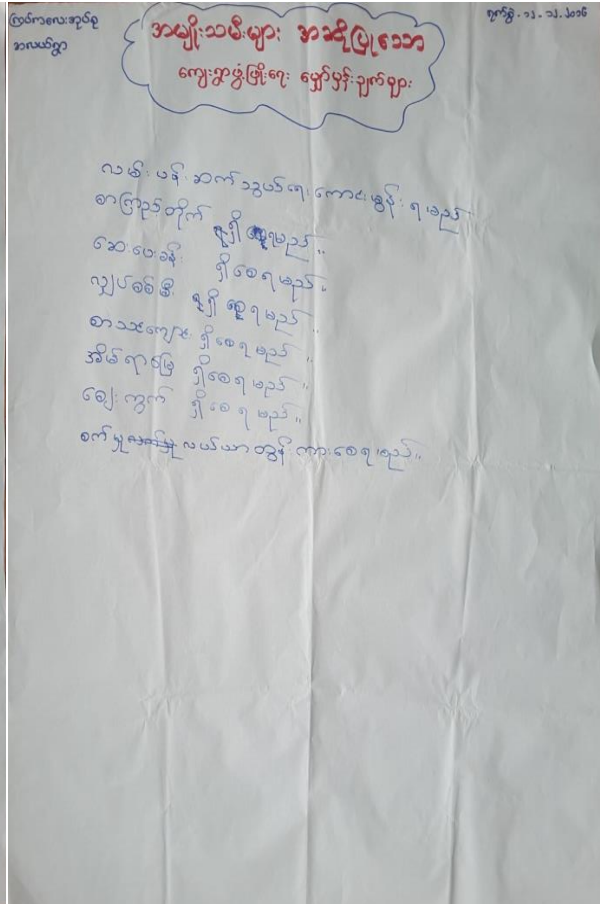 ကြပ်ကလေးအုပ်စု
အလယ်ရွာ
ရက်စွဲ - ၁၂.၁၂.၂၀၁၆
အမျိုးသမီးများ အဆိုပြုသော
ကျေးရွာဖွံ့ဖြိုးရေး မျှော်မှန်းချက်များ
လမ်းပန်းဆက်သွယ်ရေးကောင်းမွန်ရမည်
စာကြည့်တိုက် ရှိစေရမည်။
ဆေးပေးခန်း ရှိစေရမည်။
လျှပ်စစ်မီး ရရှိစေရမည်။
စာသင်ကျောင်း ရှိစေရမည်။
အိမ်ရာမြေ ရှိစေရမည်။
ဈေးကွက် ရှိစေရမည်။
စက်မှုလယ်ယာထွန်းကားစေရမည်။